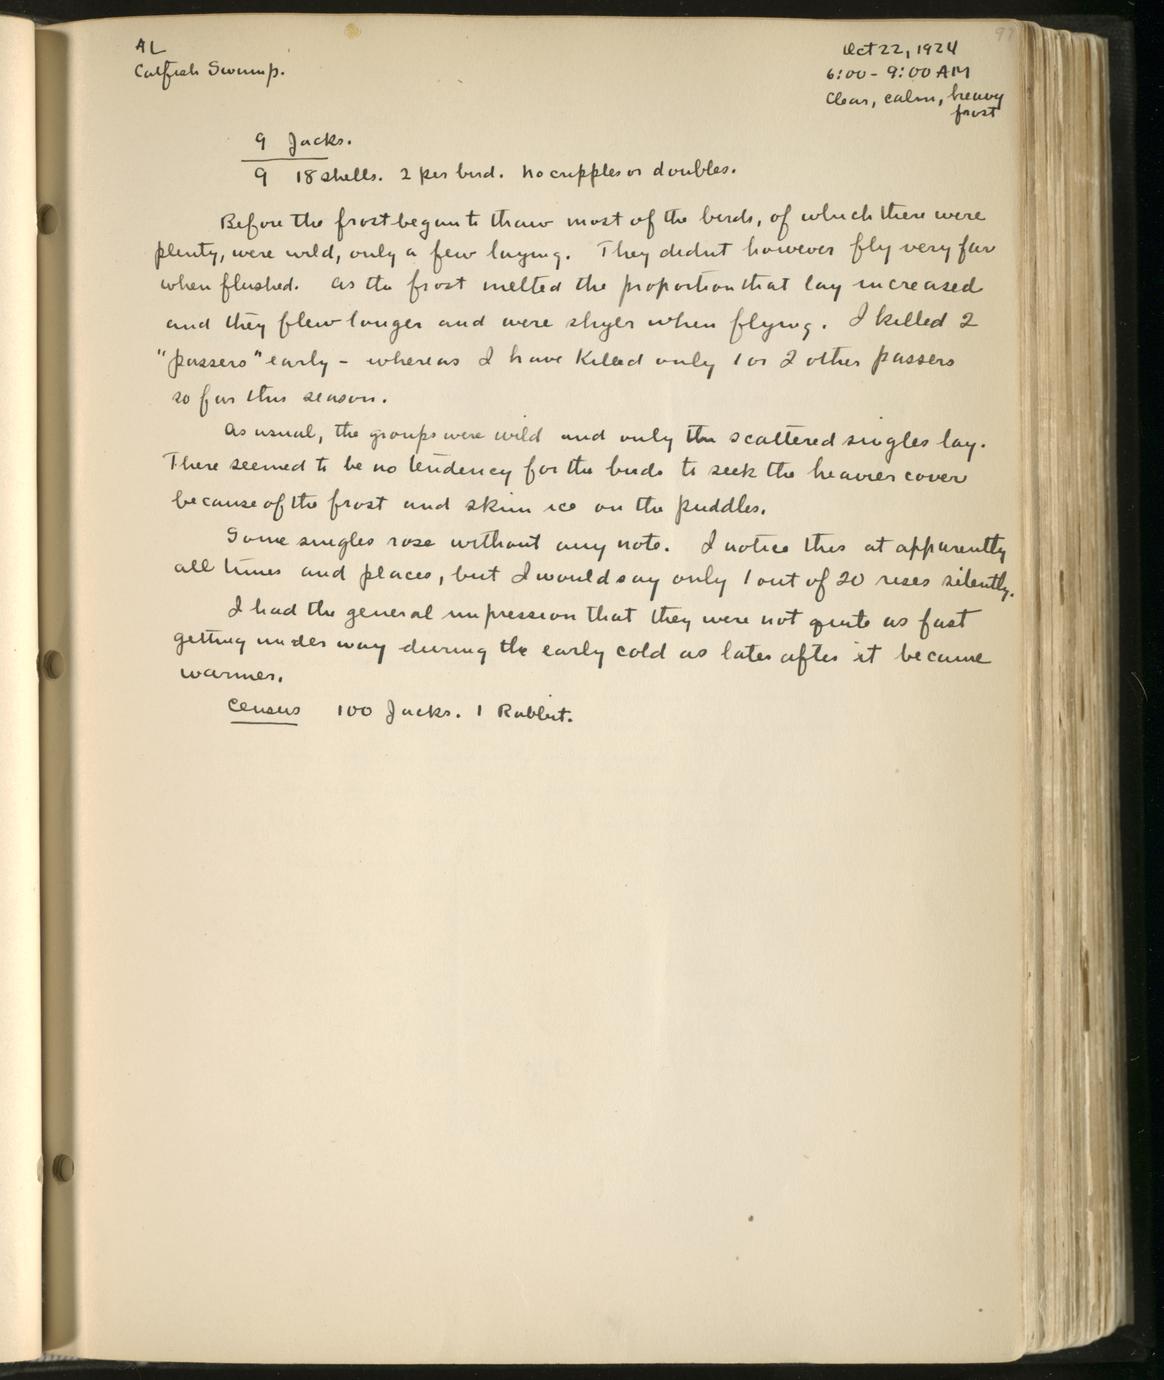 97
AL
Catfish Swamp.
Oct 22, 1924
6:00 - 9:00 AM
Clear, calm, heavy
frost
9 Jacks.
9 18 shells. 2 per bird. No cripples or doubles.
Before the frost began to thaw most of the birds, of which there were
plenty, were wild, only a few laying. They didnt however fly very far
when flushed. As the frost melted the proportion that lay increased
and they flew longer and were shyer when flying. I killed 2
"passers" early - whereas I have killed only 1 or 2 other passers
so far this season.
As usual, the groups were wild and only the scattered singles lay.
There seemed to be no tendency for the birds to seek the heavier cover
because of the frost and skim ice on the puddles.
Some singles rose without any note. I notice this at apparently
all times and places, but I would say only 1 out of 20 rises silently.
I had the general impression that they were not quite as fast
getting under way during the early cold as later after it became
warmer.
Census 100 Jacks. 1 Rabbit.